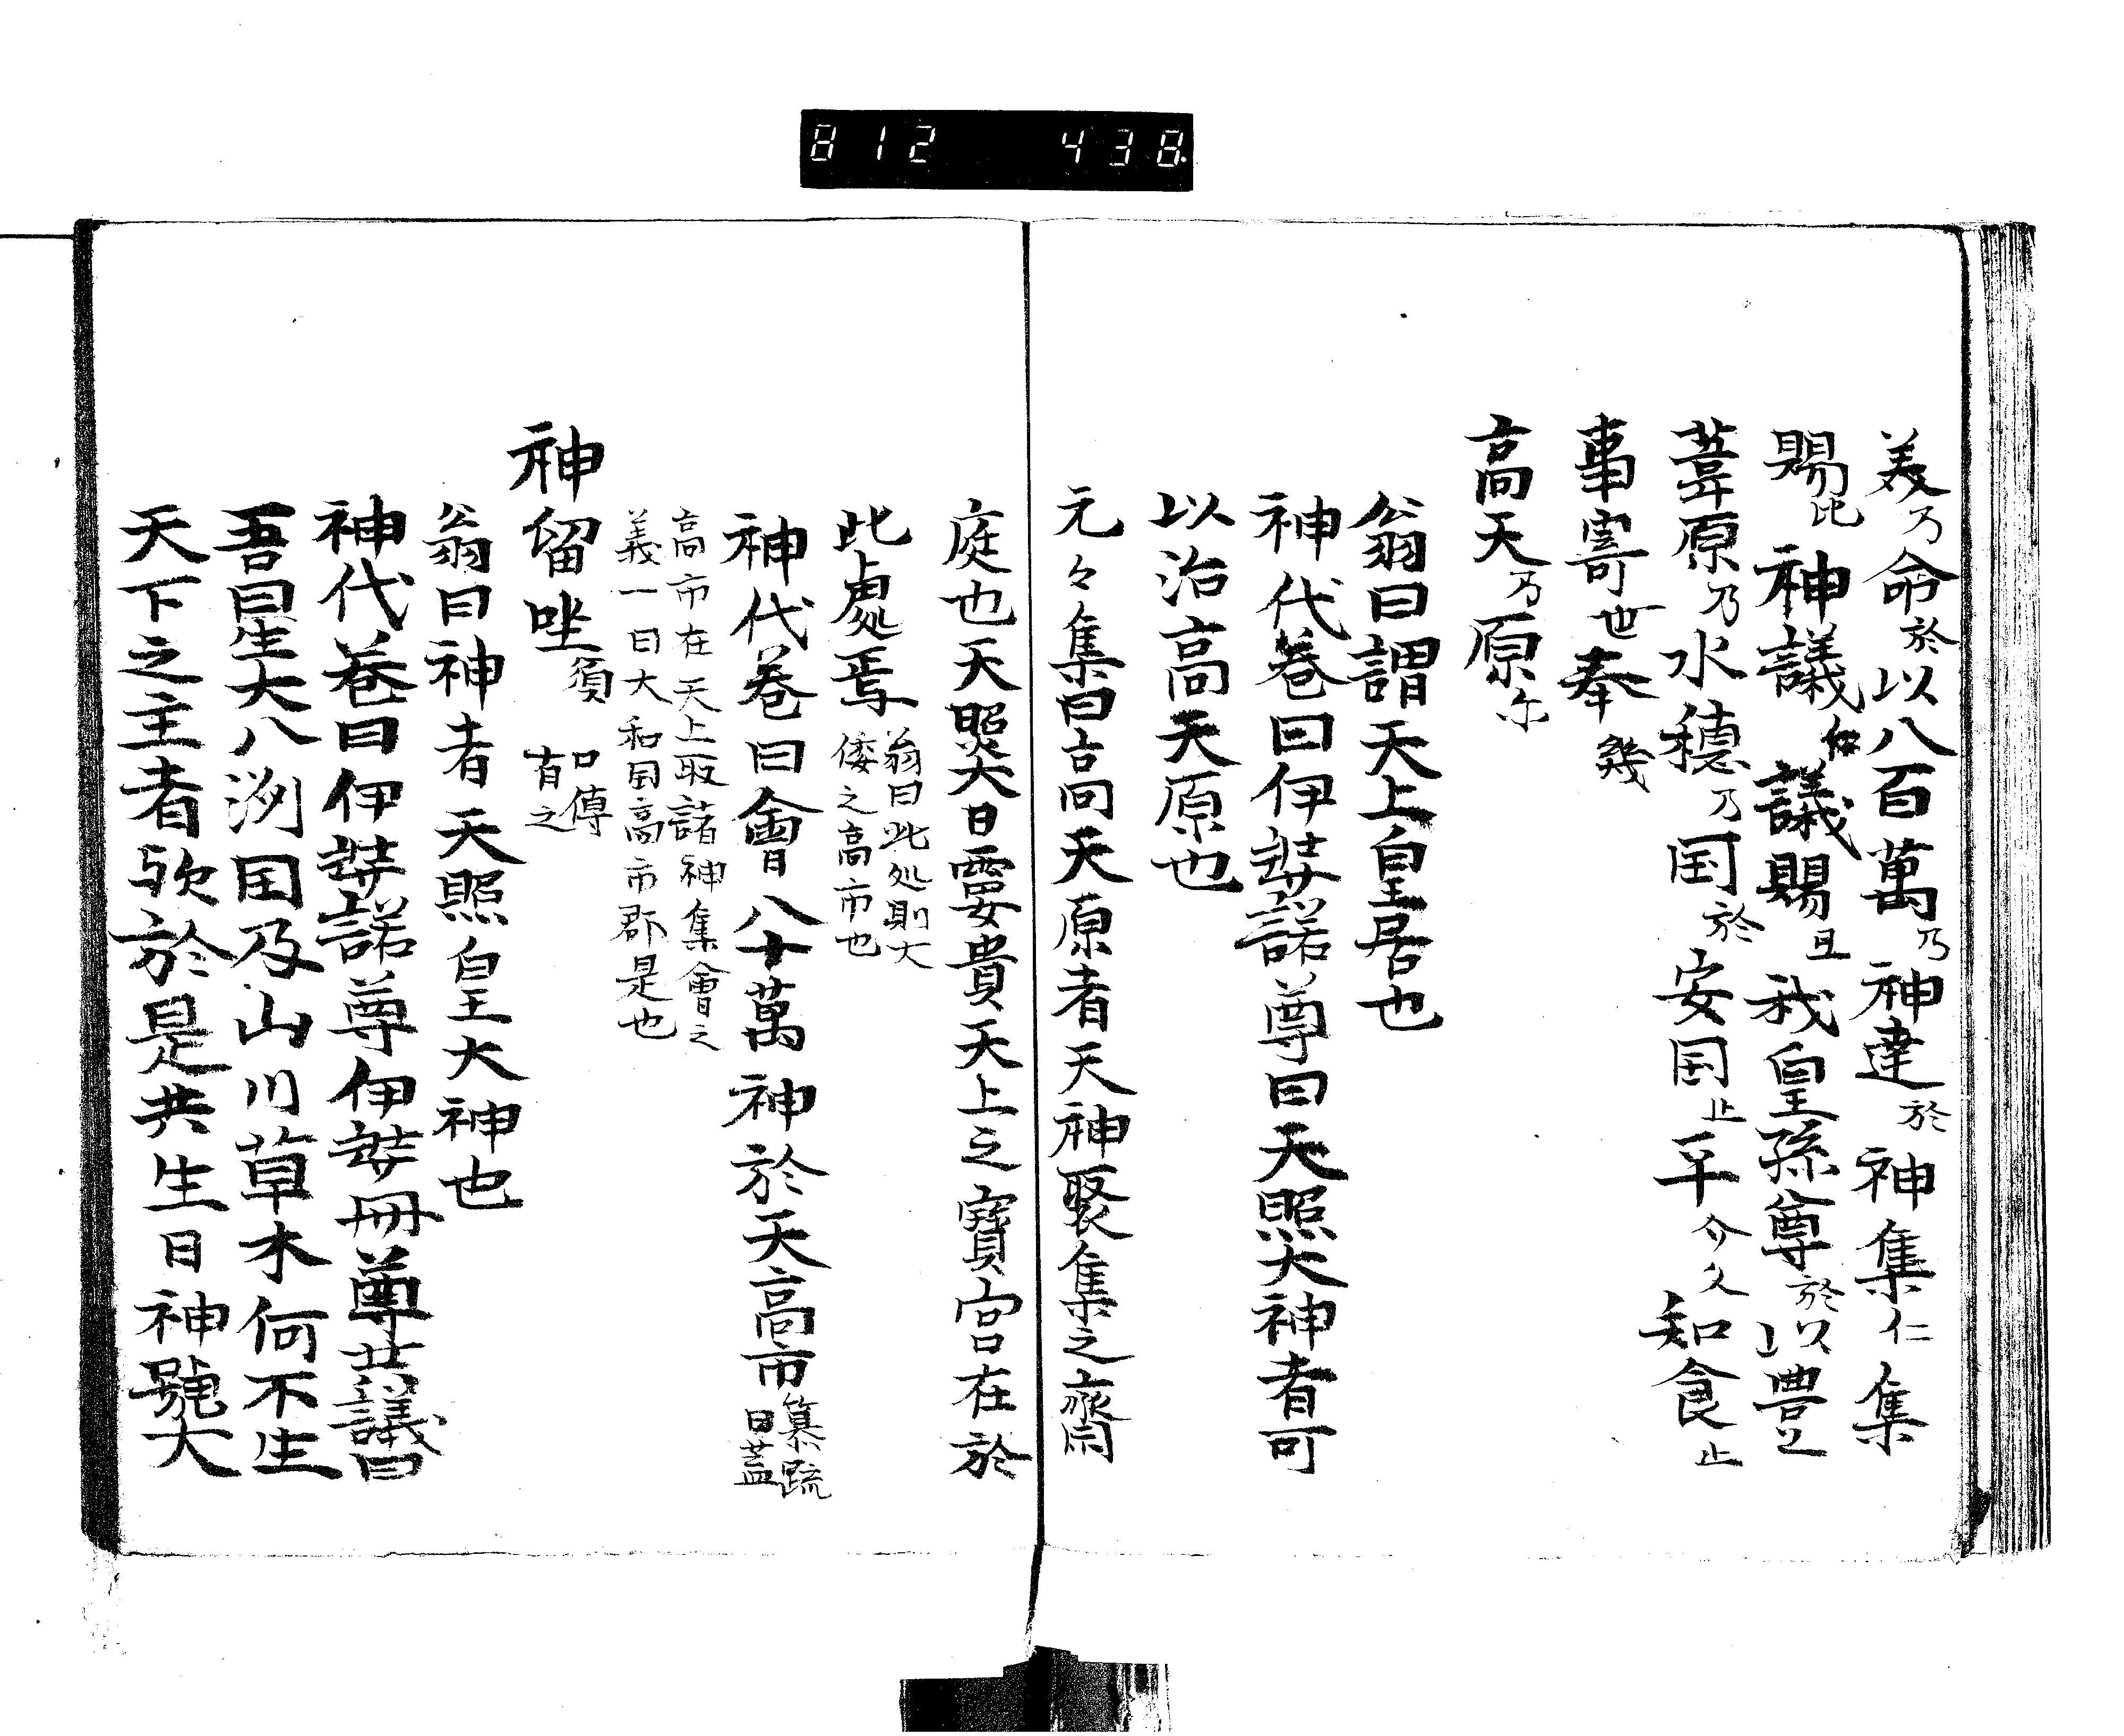 812 438
美乃命於以八百萬乃神達於神集仁集
賜比神議仁議賜且我皇孫尊於以豊
葦原乃水穂乃国於安国止平介久知食止
事寄世奉幾
高天乃原尓
翁曰謂天上皇居也
神代巻曰伊弉諾尊曰天照大神者可
以治高天原也
元々集曰高天原者天神聚集之齋
庭也天照大日孁貴天上之寶宮在於
此處焉
翁曰此処則大
倭之高市也
神代巻曰會八十萬神於天高市
纂疏
曰蓋
高市在天上取諸神集會之
義一曰大和国高市郡是也
神留坐須
口傳
有之
翁曰神者天照皇大神也
神代巻曰伊弉諾尊伊弉冊尊共議曰
吾曰生大八洲国及山川草木何不生
天下之主者欤於是共生日神號大